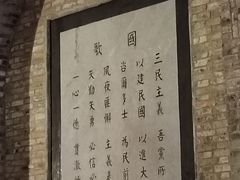 國歌
三民主義 吾黨所
以建民國 以進大
咨爾多士 為民前
夙夜匪懈 主義是
矢勤矢勇 必信必
一心一德 貫徹